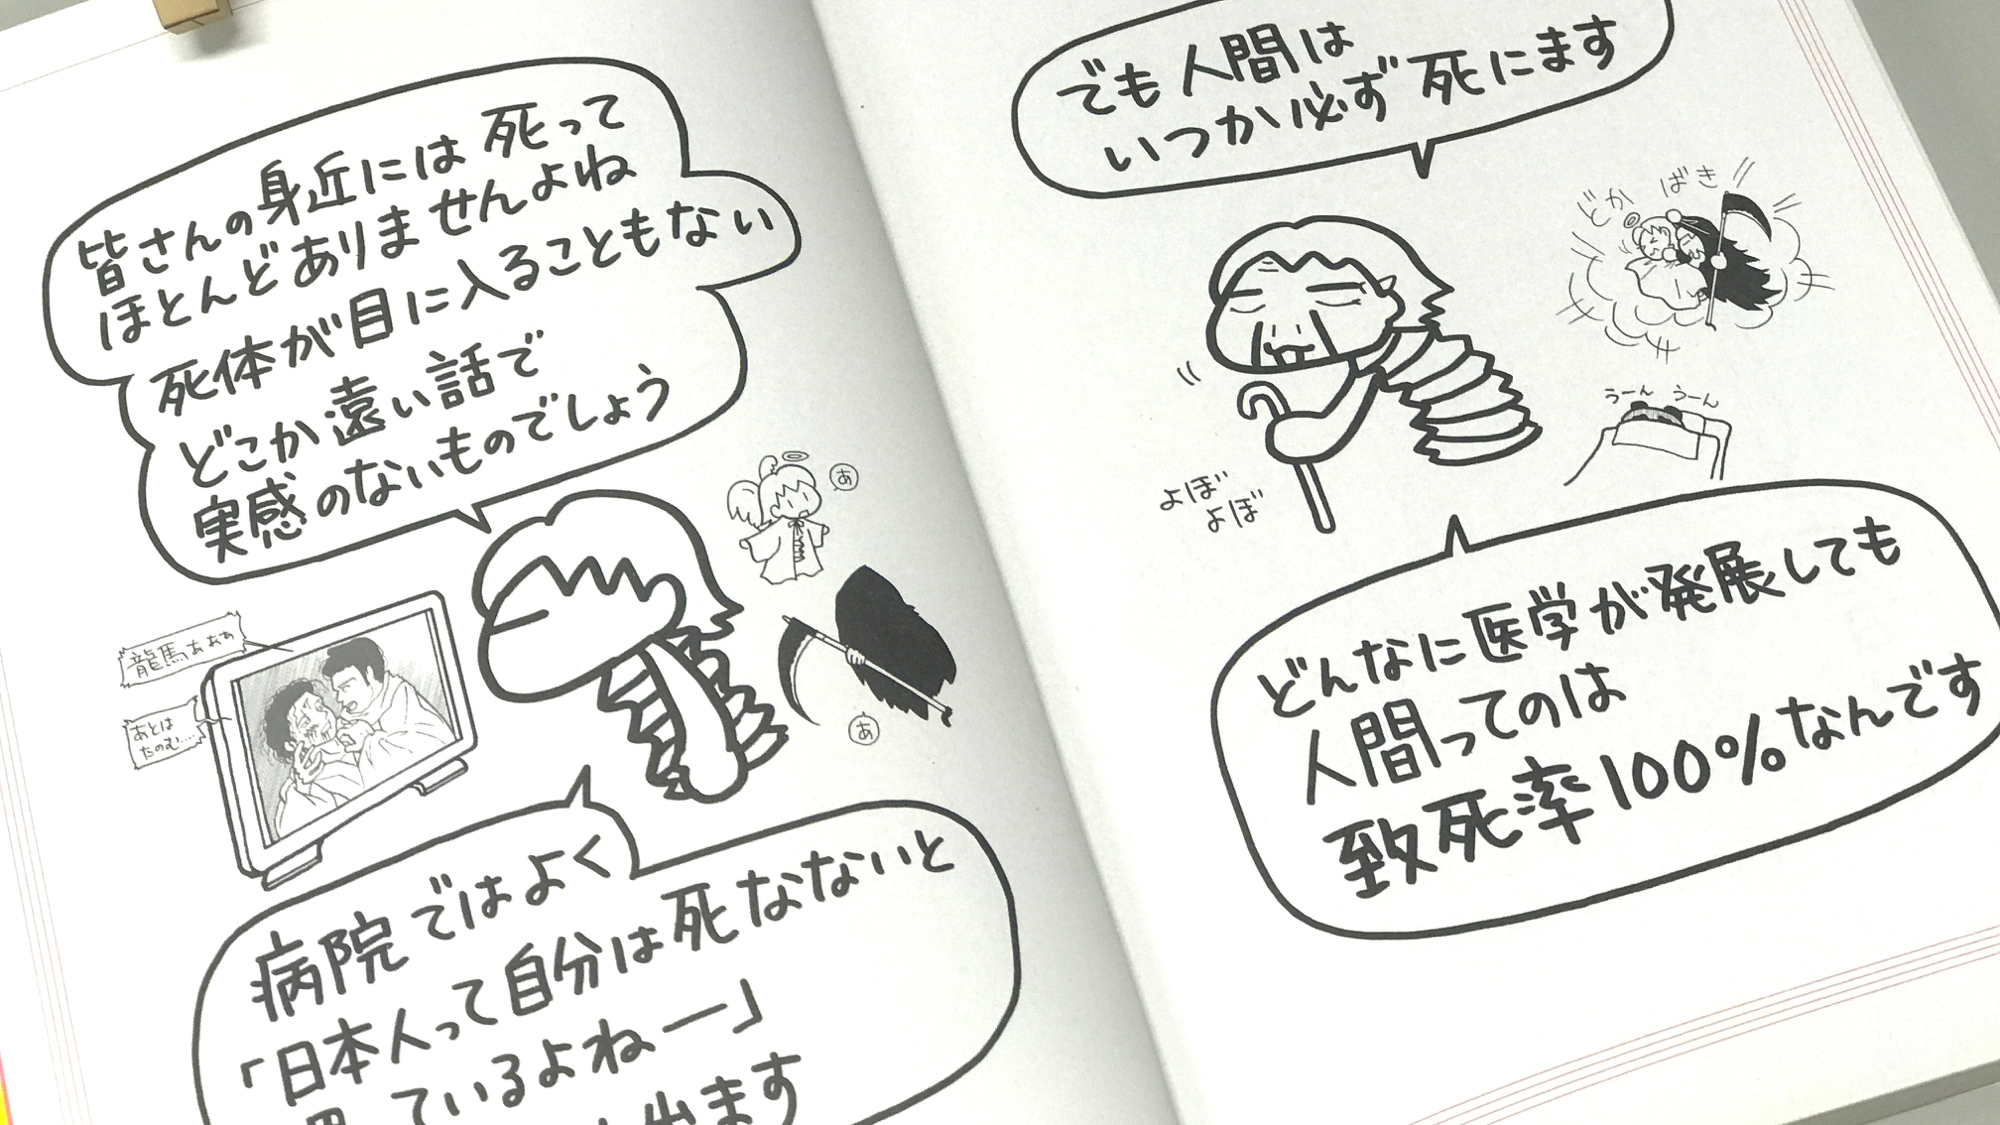 皆さんの身近には死って
ほとんどありませんよね
死体が目に入ることもない
どこか遠い話で
実感のないものでしょう
あ
龍馬ぁぁぁ
あとは
たのむ…
あ
病院ではよく
「日本人って自分は死なないと
ているよねー」
出ます
でも人間は
いつか必ず死にます
どか
ばき
うーん うーん
よぼ
よぼ
どんなに医学が発展しても
人間ってのは
致死率100%なんです